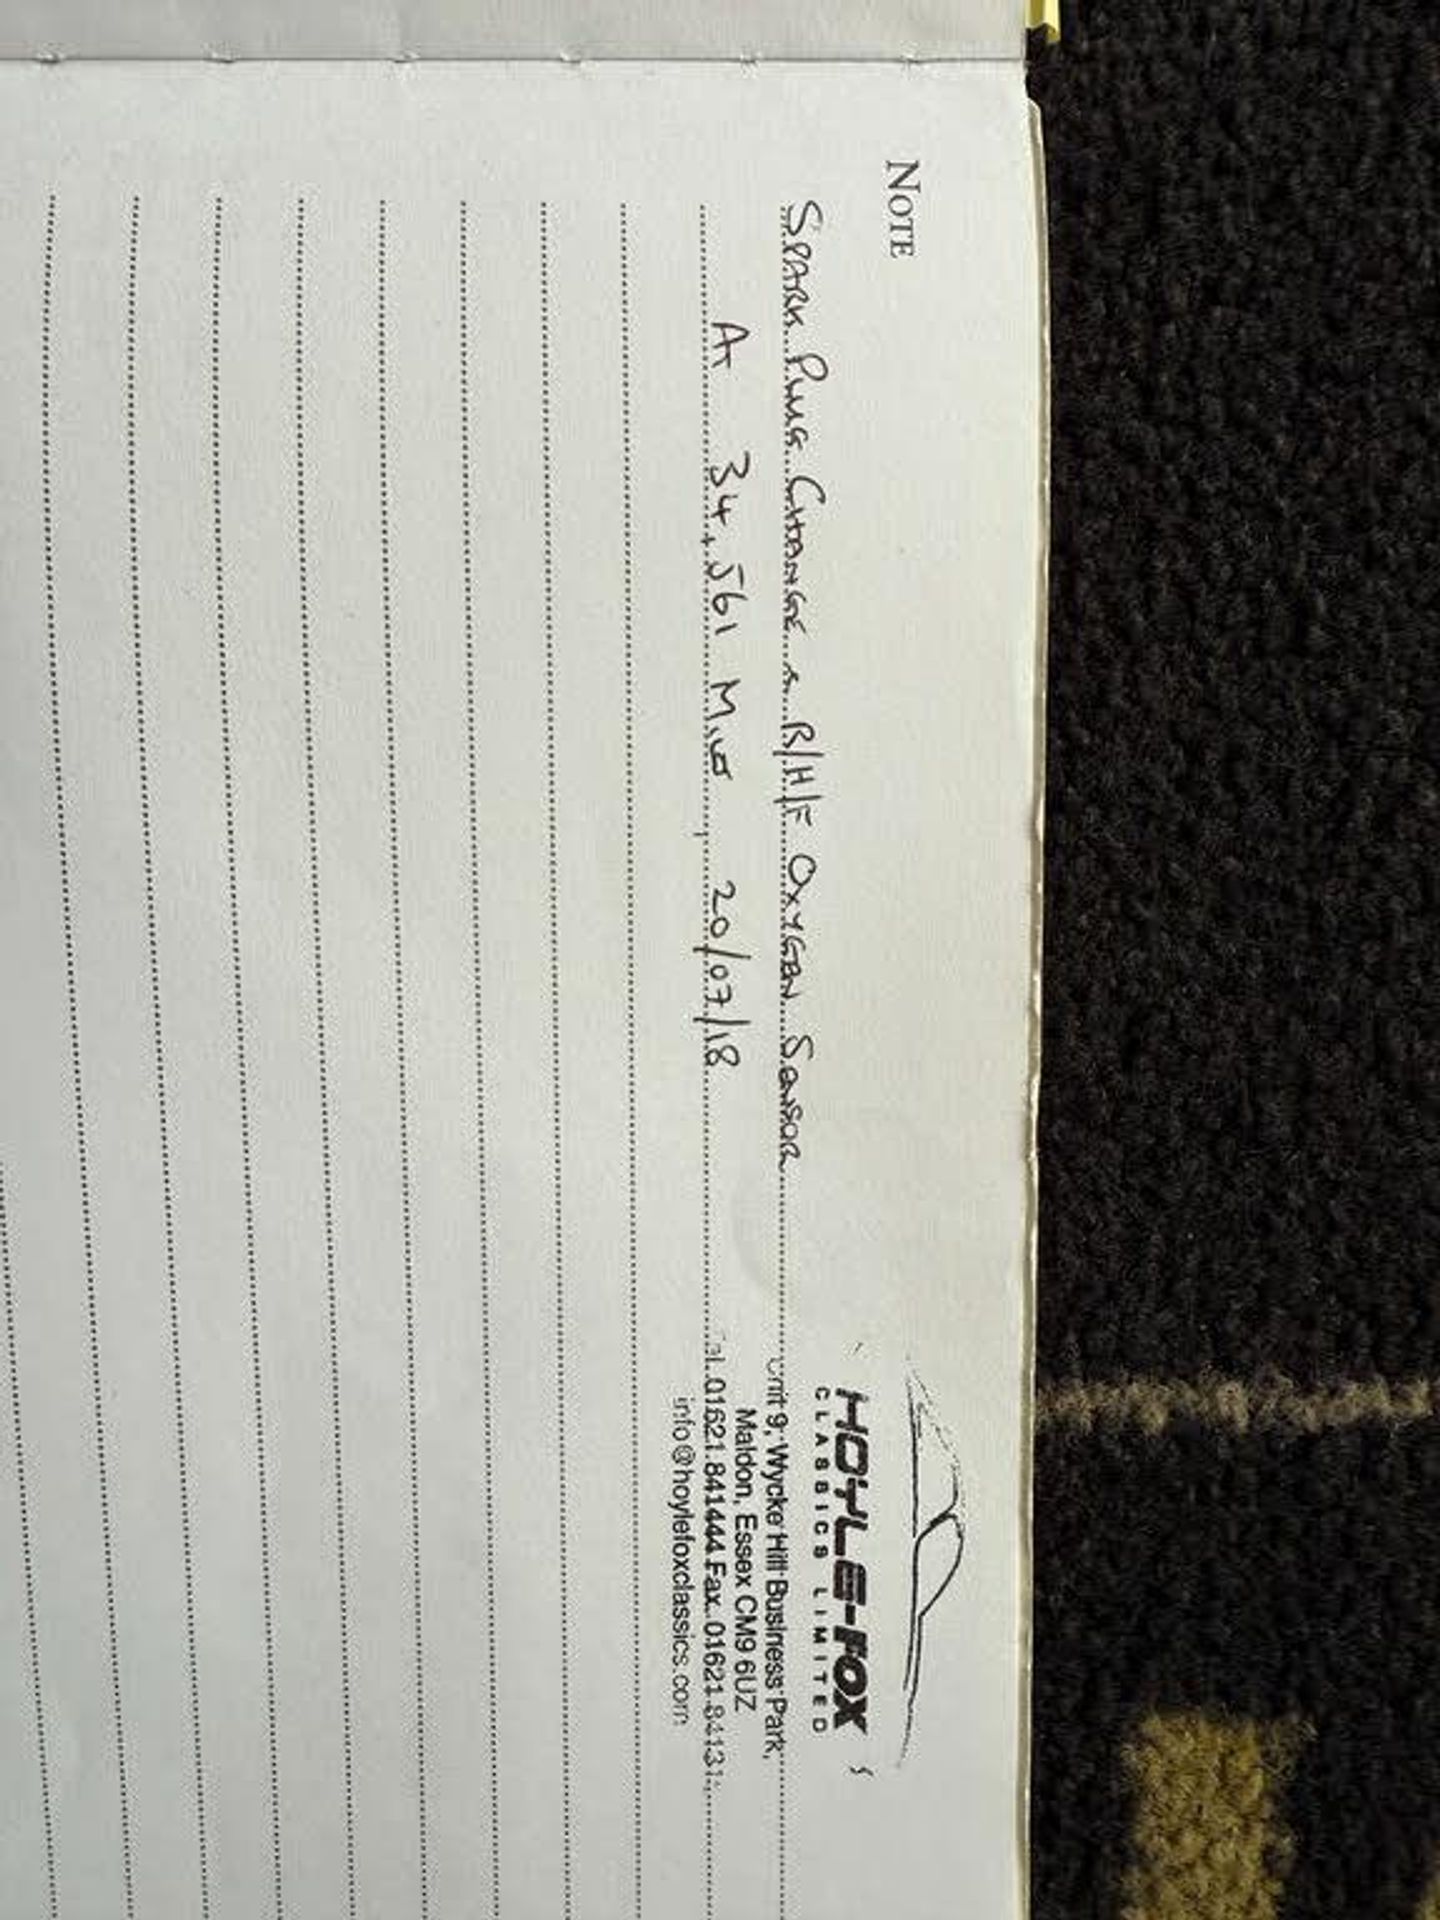 NOTE
SPARK PLUG CHANGE & R/H/F OXYGEN SENSOR
AT 34,561 MILES, 20/07/18
HOYLE-FOX
CLASSICS LIMITED
Unit 9, Wycke Hill Business Park,
Maldon, Essex CM9 6UZ
Tel. 01621 841444 Fax. 01621
info@hoylefoxclassics.com